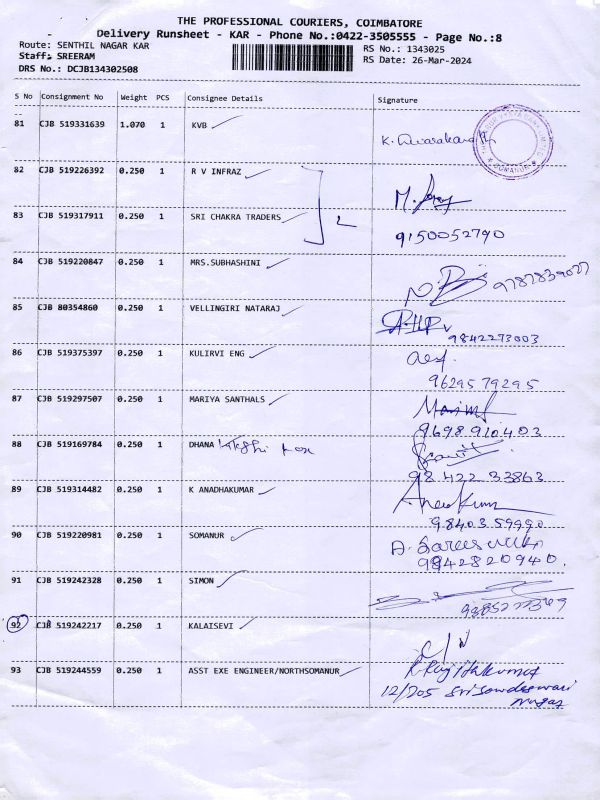 THE PROFESSIONAL COURIERS, COIMBATORE
Delivery Runsheet - KAR - Phone No.:0422-3505555 - Page No.:8
Route: SENTHIL NAGAR KAR RS No.: 1343025
Staff: SREERAM RS Date: 26-Mar-2024
DRS No.: DCJB134302508
S No Consignment No Weight PCS Consignee Details Signature
81 CJB 519331639 1.070 1 KVB
82 CJB 519226392 0.250 1 R V INFRAZ
83 CJB 519317911 0.250 1 SRI CHAKRA TRADERS 2
9150052790
84 CJB 519220847 0.250 1 MRS.SUBHASHINI
85 CJB 80354860 0.250 1 VELLINGIRI NATARAJ
9842273003
86 CJB 519375397 0.250 1 KULIRVI ENG
9629579295
87 CJB 519297507 0.250 1 MARIYA SANTHALS
9698910403
88 CJB 519169784 0.250 1 DHANA
98422 33863
89 CJB 519314482 0.250 1 K ANADHAKUMAR
9840359990
90 CJB 519220981 0.250 1 SOMANUR
9842820940.
91 CJB 519242328 0.250 1 SIMON
92 CJB 519242217 0.250 1 KALAISEVI
93 CJB 519244559 0.250 1 ASST EXE ENGINEER/NORTHSOMANUR
12/705